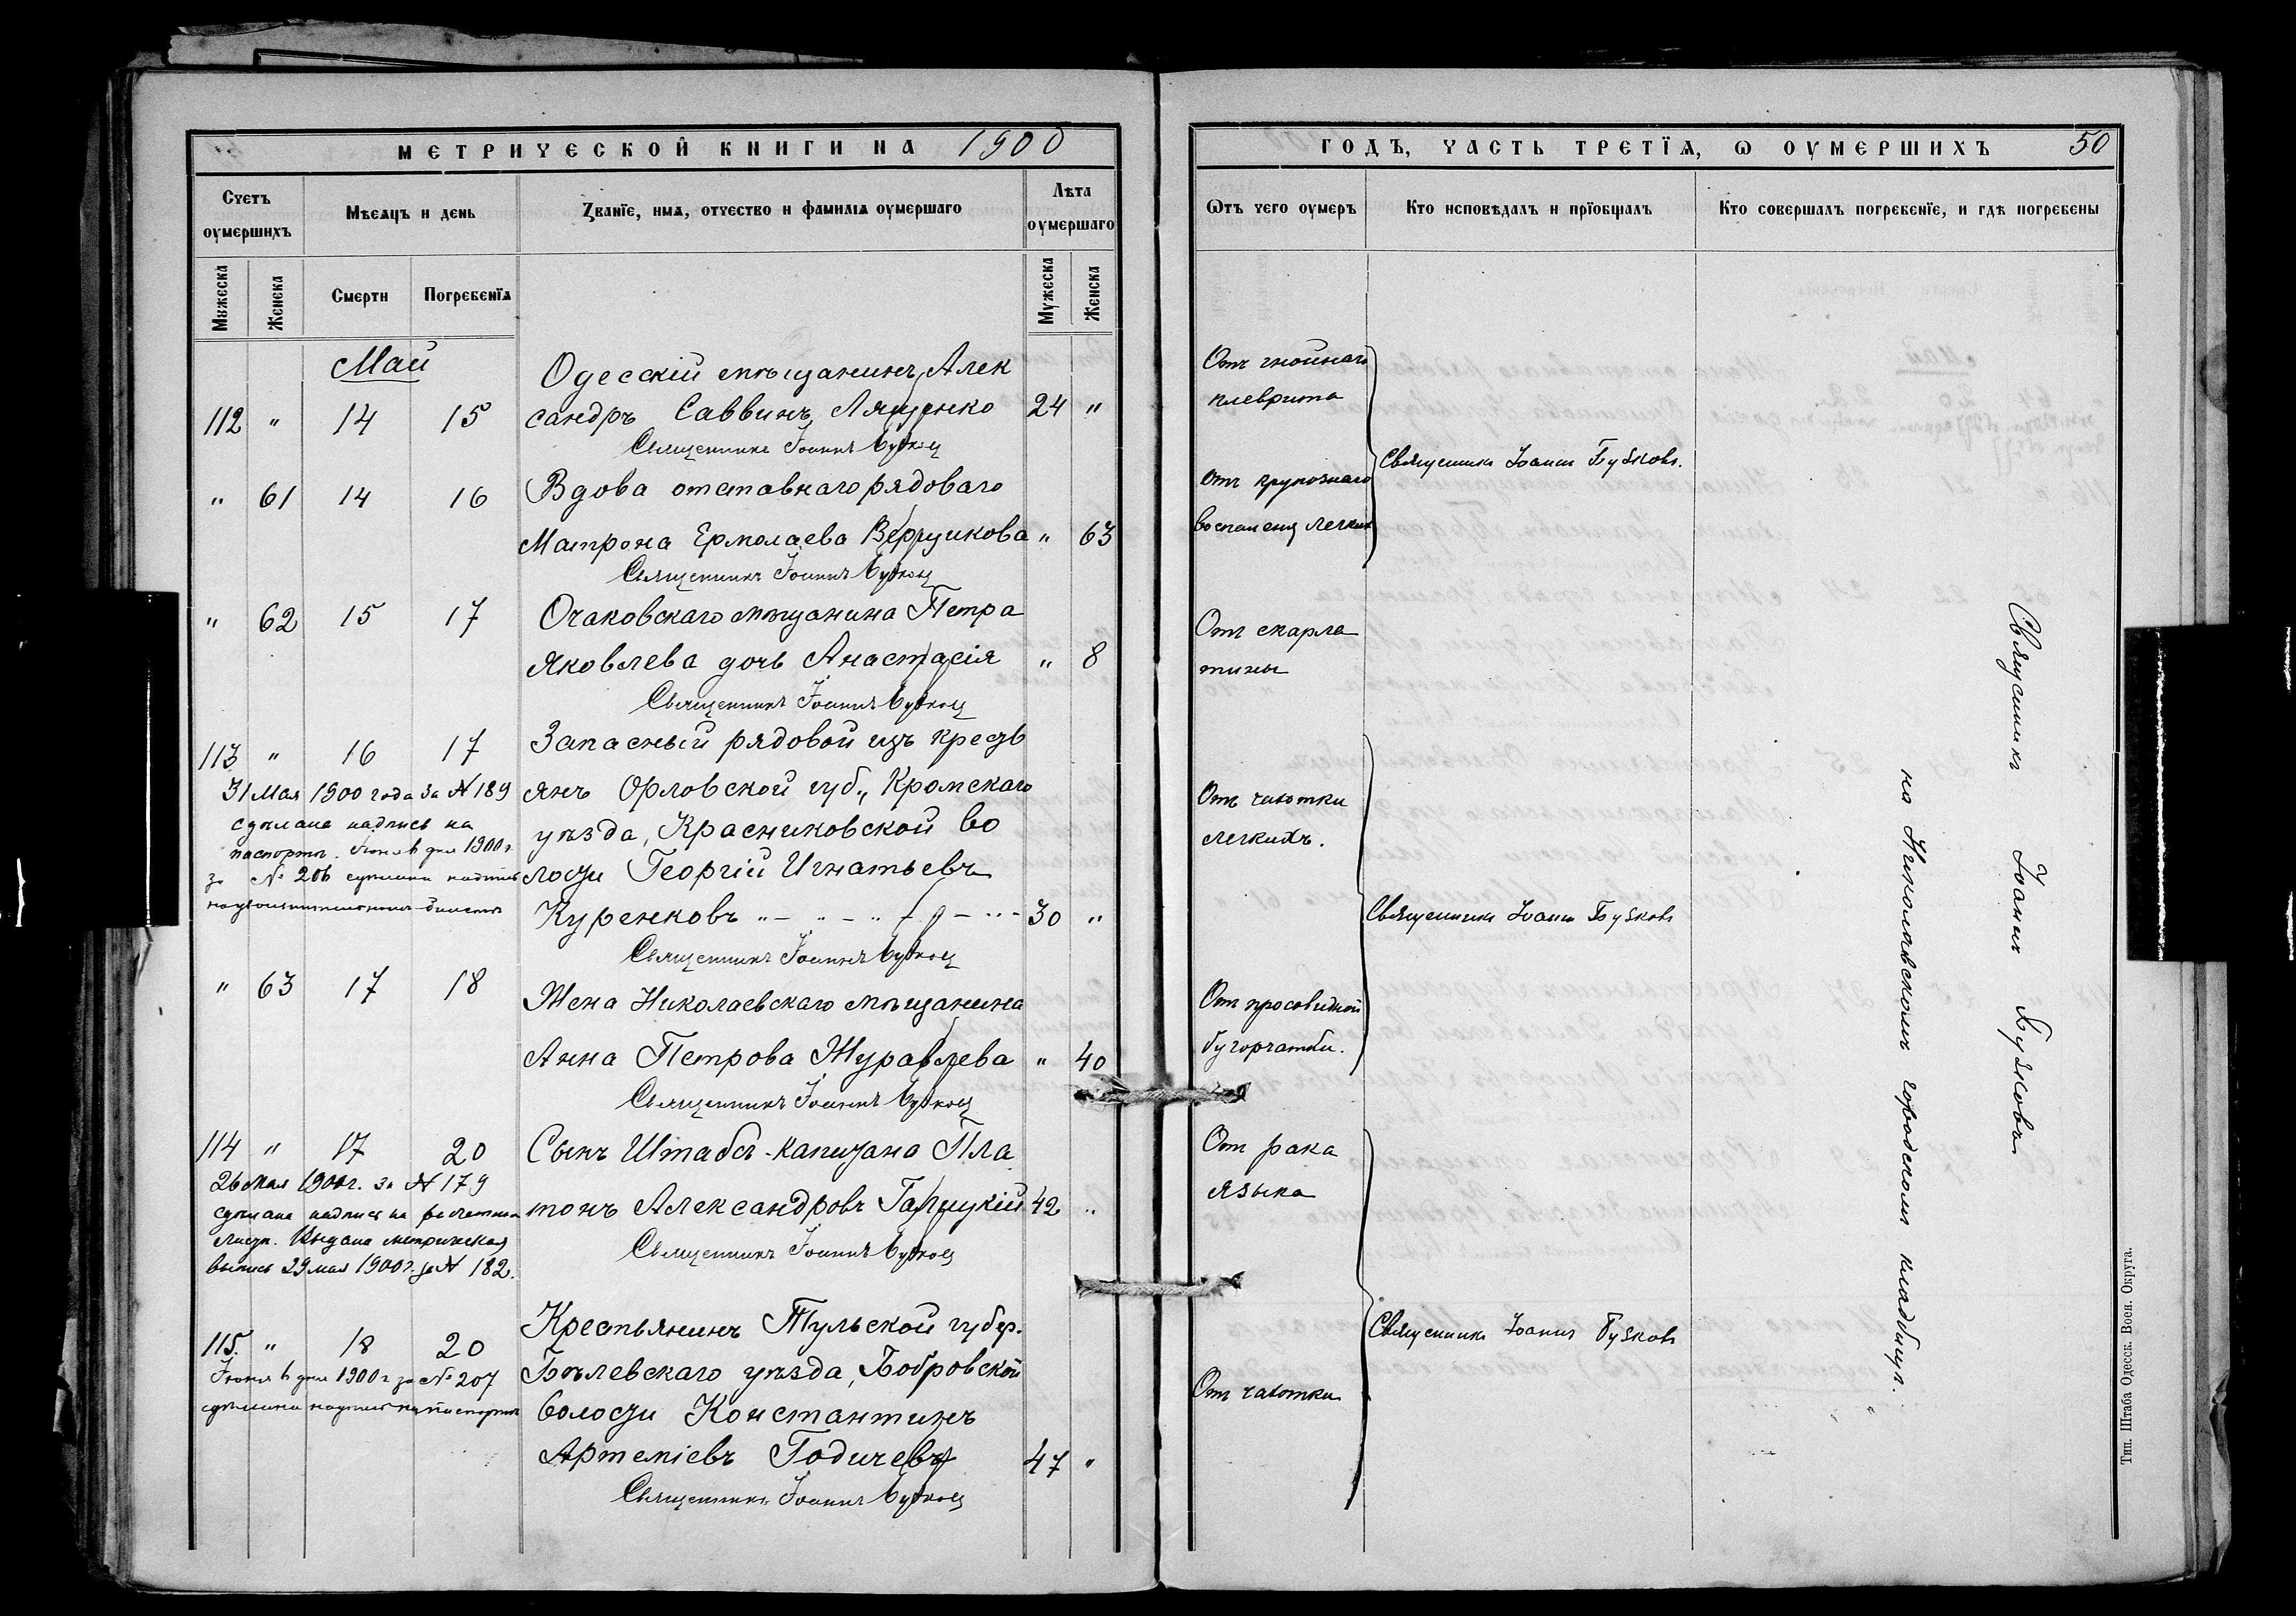 МЕТРИЧЕСКОЙ КНИГИ НА 1900
Счетъ оумершихъ
Мѣсяцъ и день
Званїе, имя, отчество и фамилїя оумершаго
Лѣта оумершаго
Мужеска
Женска
Смерти
Погребенїя
Мужеска
Женска
Май
Одесскій мѣщанинъ Алек
112 " 14 15 сандръ Саввинъ Лященко 24 "
Священникъ Іоаннъ
" 61 14 16 Вдова отставнаго рядоваго
Матрона Ермолаева " 63
Священникъ Іоаннъ
" 62 15 17 Очаковскаго мѣщанина Петра
Яковлева дочь Анастасія " 8
Священникъ Іоаннъ
113 " 16 17 Запасный рядовой изъ кресть
31 Мая 1900 года за № 189 янъ Орловской губ., Кромскаго
сдѣлана надпись на уѣзда, Красниковской во
паспортѣ. Іюня 6 дня 1900 г.
за № 206 сдѣлана надпись лости Георгій Игнатьевъ
билетѣ Куренковъ 30 "
Священникъ Іоаннъ
" 63 17 18 Жена Николаевскаго мѣщанина
Анна Петрова Журавлева " 40
Священникъ Іоаннъ
114 " 17 20 Сынъ Штабсъ-капитана Пла
26 Мая 1900 г. за № 179
сдѣлана надпись на тонъ Александровъ 42 "
Выдана метрическая Священникъ Іоаннъ
выпись 29 мая 1900 г. за № 182.
Крестьянинъ Тульской губер.
115. " 18 20
Іюня 6 дня 1900 г за № 207 Бѣлевскаго уѣзда, Бобровской
сдѣлана надпись на паспортѣ волости Константинъ
Артеміевъ Годичевъ 47 "
Священникъ Іоаннъ
ГОДЪ, ЧАСТЬ ТРЕТЇЯ, Ѡ ОУМЕРШИХЪ 50
Ѿтъ чего оумеръ
Кто исповѣдалъ и прїобщалъ
Кто совершалъ погребенїе, и гдѣ погребены
Отъ гнойнаго
плеврита
Священникъ Іоаннъ
Отъ крупознаго
воспаленія легкихъ
Отъ скарла
тины
Отъ чахотки
легкихъ.
Священникъ Іоаннъ
Отъ просовидной
бугорчатки.
Отъ рака
языка
Священникъ Іоаннъ
Отъ чахотки
Священникъ Іоаннъ
на Николаевскомъ городскомъ кладбищѣ.
Тип. Штаба Одесск. Воен. Округа.